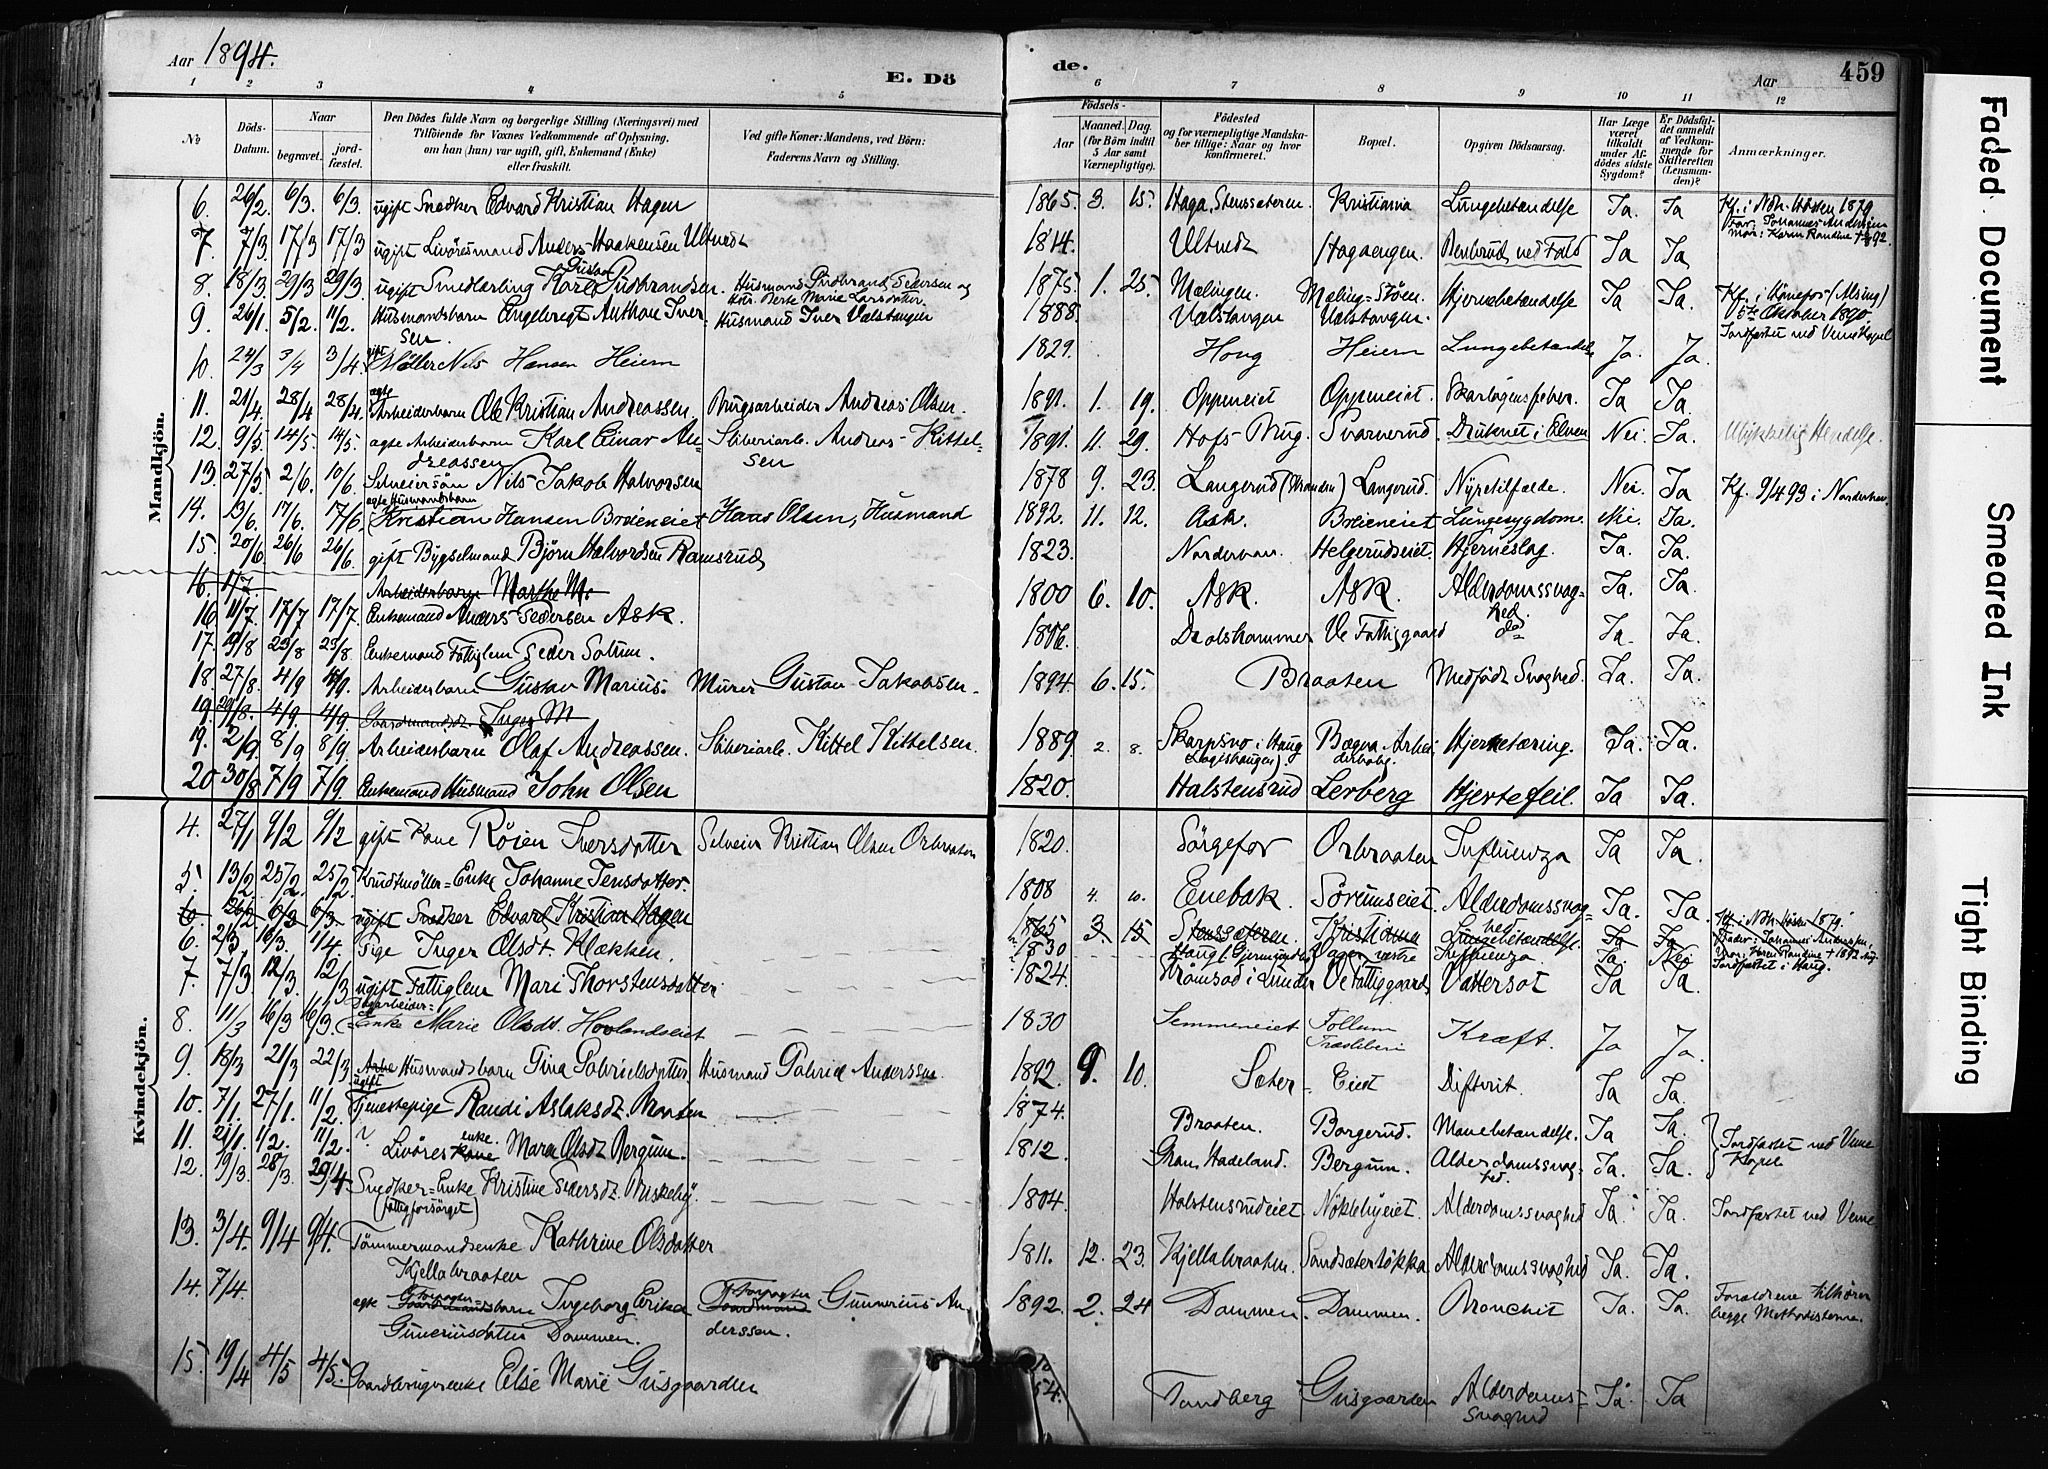 Aar 1894.
E. Dö
de.
Aar
459
1 2 3 4 5 6 7 8 9 10 11 12
No
Döds-Datum.
Naar
begravet.
jord-fæstet.
Den Dödes fulde Navn og borgerlige Stilling (Næringsvei) med
Tilföiende for Voxnes Vedkommende af Oplysning,
om han (hun) var ugift, gift, Enkemand (Enke)
eller fraskilt.
Ved gifte Koner: Mandens, ved Börn:
Faderens Navn og Stilling.
Födsels-
Aar
Maaned. Dag.
(for Börn indtil
5 Aar samt
Værnepligtige).
Födested
og for værnepligtige Mandska-
ber tillige: Naar og hvor
konfirmeret.
Bopæl.
Opgiven Dödsaarsag.
Har Læge
været
tilkaldt
under Af-
dödes sidste
Sygdom?
Er Dödsfal-
det anmeldt
af Vedkom-
mende for
Skifteretten
(Lensman-
den)?
Anmærkninger.
Mandkjön.
6. 26/2. 6/3. 6/3. ugift Snedker Edvard Kristian Hagen 1865. 3. 15. Haga, Stenssæteren. Kristiania Lungebetændelse Ja. Ja Kf. i Ndh. Hösten 1879
Far: Johannes Anderssen
Mor: Karen Randine
7. 7/3. 17/3 17/3 ugift Livöresmand Anders Haakensen Ultvedt 1814. Ultvedt Hagaengen. Benbrud ved Fald Ja Ja
8. 18/3. 29/3 29/3. ugift Smedlærling Karl Gustav Gudbrandsen. Husmand Gudbrand Pedersen og
Kone Berte Marie Larsdatter. 1875. 1. 25. Mælingen. Mæling-Støen. Hjernebetændelse Ja Ja. Kf. i Hönefos (Alsing)
5te Oktober 1890.
9. 26/1. 5/2. 11/2. Husmandsbarn Engebregt Anthon Iver-
sen. Husmand Iver Vælstangen 1888. Vælstangen Vælstangen. Jordfæstet ved Veme Kapel
10. 24/3 3/4 3/4. gift Møller Nils Hansen Heiern 1829. Houg Heiern Lungebetændelse Ja. Ja.
11. 21/4. 28/4 28/4. ægte Arbeiderbarn Ole Kristian Andreassen. Brugsarbeider Andreas Olsen. 1891. 1. 19. Oppeneiet Oppeneiet. Skarlagensfeber. Ja Ja.
12. 9/5 14/5. 14/5. ægte Arbeiderbarn Karl Einar An-
dreassen Sliberiarb. Andreas Kittel-
sen 1891. 11. 29. Hofs-Brug. Svarverud. Druknet i Elven Nei. Ja. Ulykkelig Hændelse.
13. 27/5. 2/6. 10/6. Selveiersön Nils Jakob Halvorsen 1878 9. 23. Langerud (Stranden) Langerud. Nyretilfælde. Nei. Ja Kf. 9/4 93 i Norderhov
14. 13/6. 17/6. 17/6. ægte Husmandsbarn
Kristian Hansen Bræieneiet Hans Olsen, Husmand 1892. 11. 12. Ask. Bræieneiet Lungesygdom. Nei. Ja.
15. 20/6 26/6 26/6. gift Bygselmand Björn Halvordsen Ramsrud 1823. Norderhov. Helgerudseiet. Hjerneslag. Ja. Ja.
16. 1/7. Arbeiderbarn Marthe M.
16 11/7. 17/7 17/7. Enkemand Anders Pedersen Ask. 1800 6. 10. Ask. Ask. Alderdomssvag-
hed. Ja. Ja
17. 19/8 23/8 23/8. Enkemand Fattiglem Peder Solum. 1816. Drolshammer Ve Fattiggaard do Ja. Ja.
18. 27/8. 4/9 4/9. Arbeiderbarn Gustav Marius. Murer Gustav Jakobsen. 1894. 6. 15. Braaten Medfödt Svaghed. Ja. Ja.
19. 29/8. 4/9. 4/9. Gaardmandsdt. Inger M
19. 2/9. 8/9 8/9. Arbeiderbarn Olaf Andreassen. Sliberiarb. Kittel Kittelsen. 1889. 2. 8. Skarpsno i Haug Bægna Arbei-
derbolig. Hjernetæring. Ja. Ja.
20 30/8 7/9 7/9. Enkemand Husmand John Olsen 1820. Halstensrud Lerberg Hjertefeil. Ja Ja.
Kvindekjön.
4. 27/1 9/2 9/2 gift Kone Röien Iversdatter Selveier Kristian Olsen Orbraaten 1820. Sörgefor Orbraaten Influenza Ja Ja.
5. 13/2 25/2. 25/2. Krudtmøller-Enke Johanne Jensdatter. 1808 4. 10. Enebak. Sörumseiet. Alderdomssvag-
hed Ja. Ja.
6. 26/2. 6/3. 6/3. ugift Snedker Edvard Kristian Hagen 1865 3. 15 Stensæteren. Kristiania Lungebetændelse. Ja Ja Kf. i Ndh. Hösten 1879.
Fader: Johannes Anderssen,
Jordfæstet i Haug.
6. 2/3 10/3. 11/4. Pige Inger Olsdt. Klækken. 1830 Influenza. Ja. Nei
7. 7/3 12/3. 12/3 ugift Fattiglem Mari Thorstensdatter 1824. Ve Fattiggaard Vattersot Ja Ja.
8. 11/3 16/3 16/3. Dagarbeider-
Enke Marie Olsdt. Hovlandseiet 1830 Semmeneiet Follum
Træsliberi Kræft. Ja Ja.
9. 18/3 21/3 22/3. Husmandsbarn Gina Gabrielsdatter. Husmand Gabriel Anderssen. 1892. 9. 10. Sæter- Eiet Difterit. Ja Ja.
10. 7/1. 27/1. 11/2. ugift
Tjenestepige Randi Aslaksdt. Braaten 1874. Braaten. Borgerud. Mavebetændelse. Ja Ja. Jordfæstet ved Veme
Kapel
11. 21/1. 1/2. 11/2. Livöres enke Kone Mari Olsdt Bergum. 1812. Gran, Hadeland. Bergum. Alderdomssvag-
hed. Ja. Ja.
12. 19/3. 28/3 29/4 Snedker-Enke Kristine Pedersdt. Briskeby.
(fattigforsörget) 1804 Halstensrudeiet. Nökkebyeiet. Alderdomssvaghed Ja. Ja. Jordfæstet ved Veme
13. 3/4. 9/4 9/4. Tömmermandsenke Kathrine Olsdatter
Kjellabraaten 1811. 12. 23. Kjellabraaten. Sandsæterløkka Alderdomssvaghed Ja. Ja.
14. 7/4. ægte Forpagter- Gaardmandsbarn Ingeborg Erika
Gunneriusdatter Dammen. Forpagter Gaardmand Gunnerius An-
derssen. 1892. 2. 24 Dammen. Dammen. Bronchit Ja. Ja. Forældrene tilhører
begge Methodisterne.
15. 19/4 4/5 4/5. Gaardbrugerenke Else Marie Gusgaarden Tandberg Gusgaarden Alderdoms-
svaghed Ja. Ja
Faded Document
Smeared Ink
Tight Binding